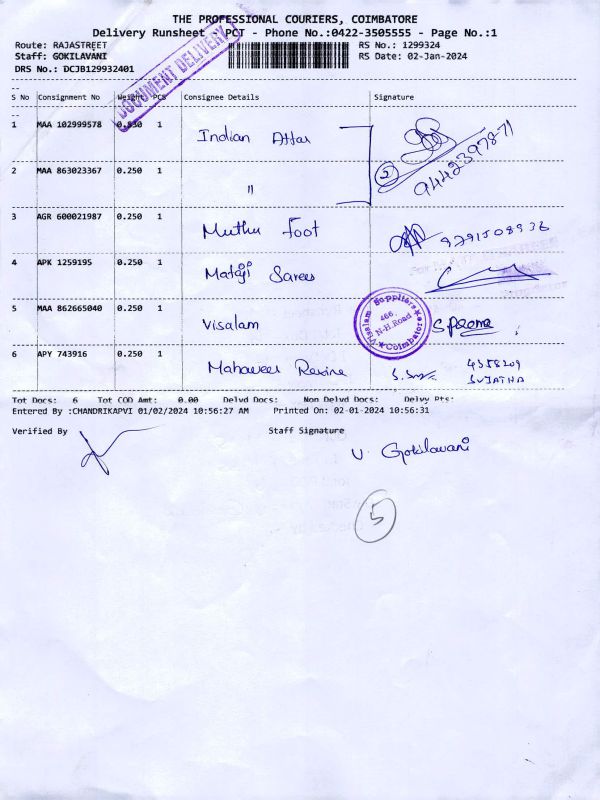 THE PROFESSIONAL COURIERS, COIMBATORE
Delivery Runsheet - PCT - Phone No.:0422-3505555 - Page No.:1
Route: RAJASTREET
RS No.: 1299324
Staff: GOKILAVANI
RS Date: 02-Jan-2024
DRS No.: DCJB129932401
DOCUMENT DELIVERY
S No Consignment No Weight PCS Consignee Details Signature
1 MAA 102999578 0.830 1 Indian Attar
2 9442397871
2 MAA 863023367 0.250 1 "
3 AGR 600021987 0.250 1 Muthu Foot 9791508936
4 APK 1259195 0.250 1 Mataji Sarees
5 MAA 862665040 0.250 1 Visalam
Visalam Suppliers
466,
N-H.Road
Coimbatore
6 APY 743916 0.250 1 Mahaveer 4358209
SUJATHA
Tot Docs: 6 Tot COD Amt: 0.00 Delvd Docs: Non Delvd Docs: Delvy Pts:
Entered By :CHANDRIKAPVI 01/02/2024 10:56:27 AM Printed On: 02-01-2024 10:56:31
Verified By Staff Signature
V. Gokilavani
5